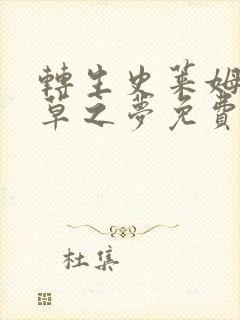 轉生史萊姆
草之夢免費
杜集